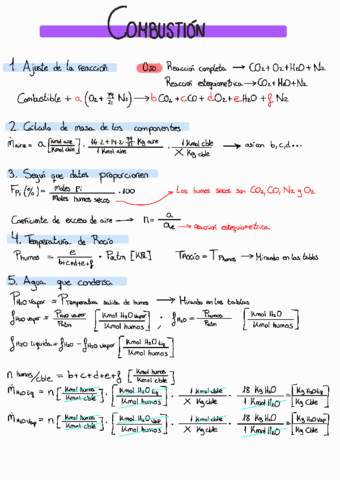 COMBUSTIÓN
1. Ajuste de la reacción
OJO Reacción completa → CO2 + O2 + H2O + N2
Reacción estequiométrica → CO2 + H2O + N2
Combustible + a (O2 + 79/21 N2) → bCO2 + cCO + dO2 + eH2O + fN2
2. Cálculo de masa de los componentes
ṁaire = a [Kmol aire / Kmol cble] · (16·2 + 14·2·79/21) Kg aire / 1 Kmol aire · 1 Kmol cble / X Kg cble → así con b, c, d...
3. Según que datos proporcionen
FPi (%) = moles Pi / moles humos secos · 100
Los humos secos son CO2, CO, N2 y O2.
Coeficiente de exceso de aire → n = a / ae → reacción estequiométrica
4. Temperatura de Rocío
Phumos = e / b+c+d+e+f · Patm [KPa] TRocío = T Phumos → Mirando en las tablas
5. Agua que condensa
PH2O vapor = Ptemperatura salida de humos → Mirando en las tablas
fH2O vapor = PH2O vapor / Patm [Kmol H2O vapor / Kmol humos] fH2O = Phumos / Patm [Kmol H2O / Kmol humos]
fH2O líquida = fH2O - fH2O vapor [Kmol H2O Liq / Kmol humos]
n humos/cble = b+c+d+e+f [Kmol humos / Kmol cble]
ṁH2O Liq = n [Kmol humos / Kmol cble] · [Kmol H2O Liq / Kmol humos] · 1 Kmol cble / X Kg cble · 18 Kg H2O / 1 Kmol H2O = [Kg H2O Liq / Kg Cble]
ṁH2O Vap = n [Kmol humos / Kmol cble] · [Kmol H2O Vap / Kmol humos] · 1 Kmol cble / X Kg cble · 18 Kg H2O / 1 Kmol H2O = [Kg H2O Vap / Kg Cble]